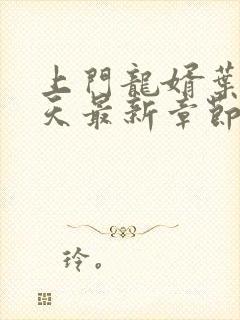 上門龍婿葉
天最新章節
玲。